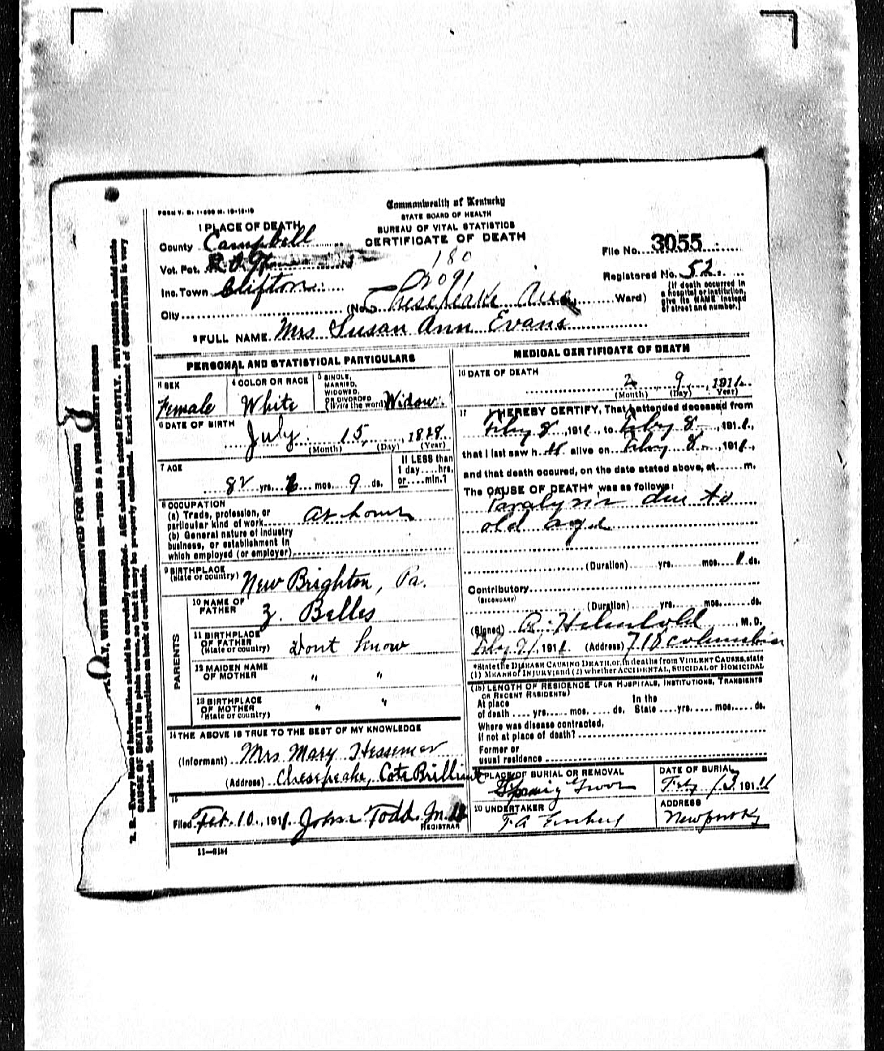 FORM V. S. 1-
Commonwealth of Kentucky
STATE BOARD OF HEALTH
BUREAU OF VITAL STATISTICS
CERTIFICATE OF DEATH
1 PLACE OF DEATH
County Campbell
Vot. Pct.
Inc. Town Clifton
City (No. Chesepeake Ave. Ward)
File No. 3055
Registered No. 52.
180
2091
(If death occurred in a hospital or institution, give its NAME instead of street and number.)
2 FULL NAME Mrs Susan Ann Evans
PERSONAL AND STATISTICAL PARTICULARS
3 SEX Female
4 COLOR OR RACE White
5 SINGLE, MARRIED, WIDOWED, OR DIVORCED (Write the word) Widow.
6 DATE OF BIRTH
July 15, 1828
(Month) (Day) (Year)
7 AGE
82 yrs. 6 mos. 9 ds.
If LESS than 1 day....hrs. or....min.?
8 OCCUPATION
(a) Trade, profession, or particular kind of work At home
(b) General nature of industry business, or establishment in which employed (or employer)
9 BIRTHPLACE
(State or country) New Brighton, Pa.
PARENTS
10 NAME OF FATHER Z. Belles
11 BIRTHPLACE OF FATHER (State or country) Dont know
12 MAIDEN NAME OF MOTHER " "
13 BIRTHPLACE OF MOTHER (State or country) " "
14 THE ABOVE IS TRUE TO THE BEST OF MY KNOWLEDGE
(Informant) Mrs Mary Hessemer
(Address) Chesepeake, Cote Brilliant
15
Filed Feb. 10., 1911 John Todd M D
REGISTRAR
11-
MEDICAL CERTIFICATE OF DEATH
16 DATE OF DEATH
2 9, 1911
(Month) (Day) (Year)
17 I HEREBY CERTIFY, That I attended deceased from
Feby 8, 1911, to Feby 8, 1911,
that I last saw h alive on Feby 8, 1911,
and that death occured, on the date stated above, at m.
The CAUSE OF DEATH* was as follows:
Paralysis due to
old age
(Duration) yrs. mos. ds.
Contributory
(SECONDARY)
(Duration) yrs. mos. ds.
(Signed) , M. D.
Feby 9, 1911 (Address) 718 Columbia
*State the DISEASE CAUSING DEATH, or, in deaths from VIOLENT CAUSES, state
(1) MEANS OF INJURY; and (2) whether ACCIDENTAL, SUICIDAL or HOMICIDAL
18 LENGTH OF RESIDENCE (FOR HOSPITALS, INSTITUTIONS, TRANSIENTS OR RECENT RESIDENTS)
At place of death yrs. mos. ds. In the State yrs. mos. ds.
Where was disease contracted,
if not at place of death?
Former or
usual residence
19 PLACE OF BURIAL OR REMOVAL
DATE OF BURIAL
Feby 13, 1911
20 UNDERTAKER
ADDRESS
Newport Ky